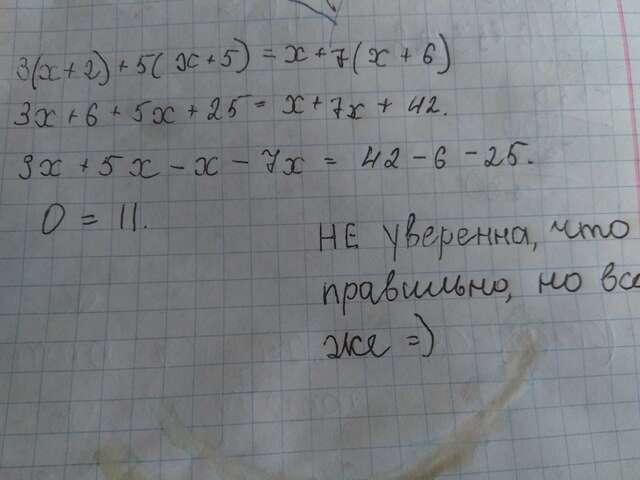 3(x+2)+5(x+5) = x+7(x+6)
3x+6+5x+25 = x+7x+42.
3x+5x-x-7x = 42-6-25.
0 = 11.
НЕ уверенна, что
правильно, но все
же =)